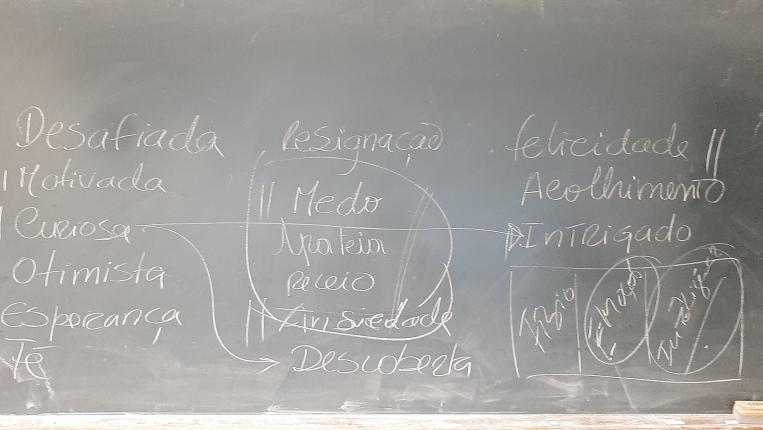 Desafiada
Motivada
Curiosa
Otimista
Esperança
Fé
Resignação
Medo
Apateia
Receio
Ansiedade
Descoberta
felicidade
Acolhimento
INTRIGADO
Físio
Emoção